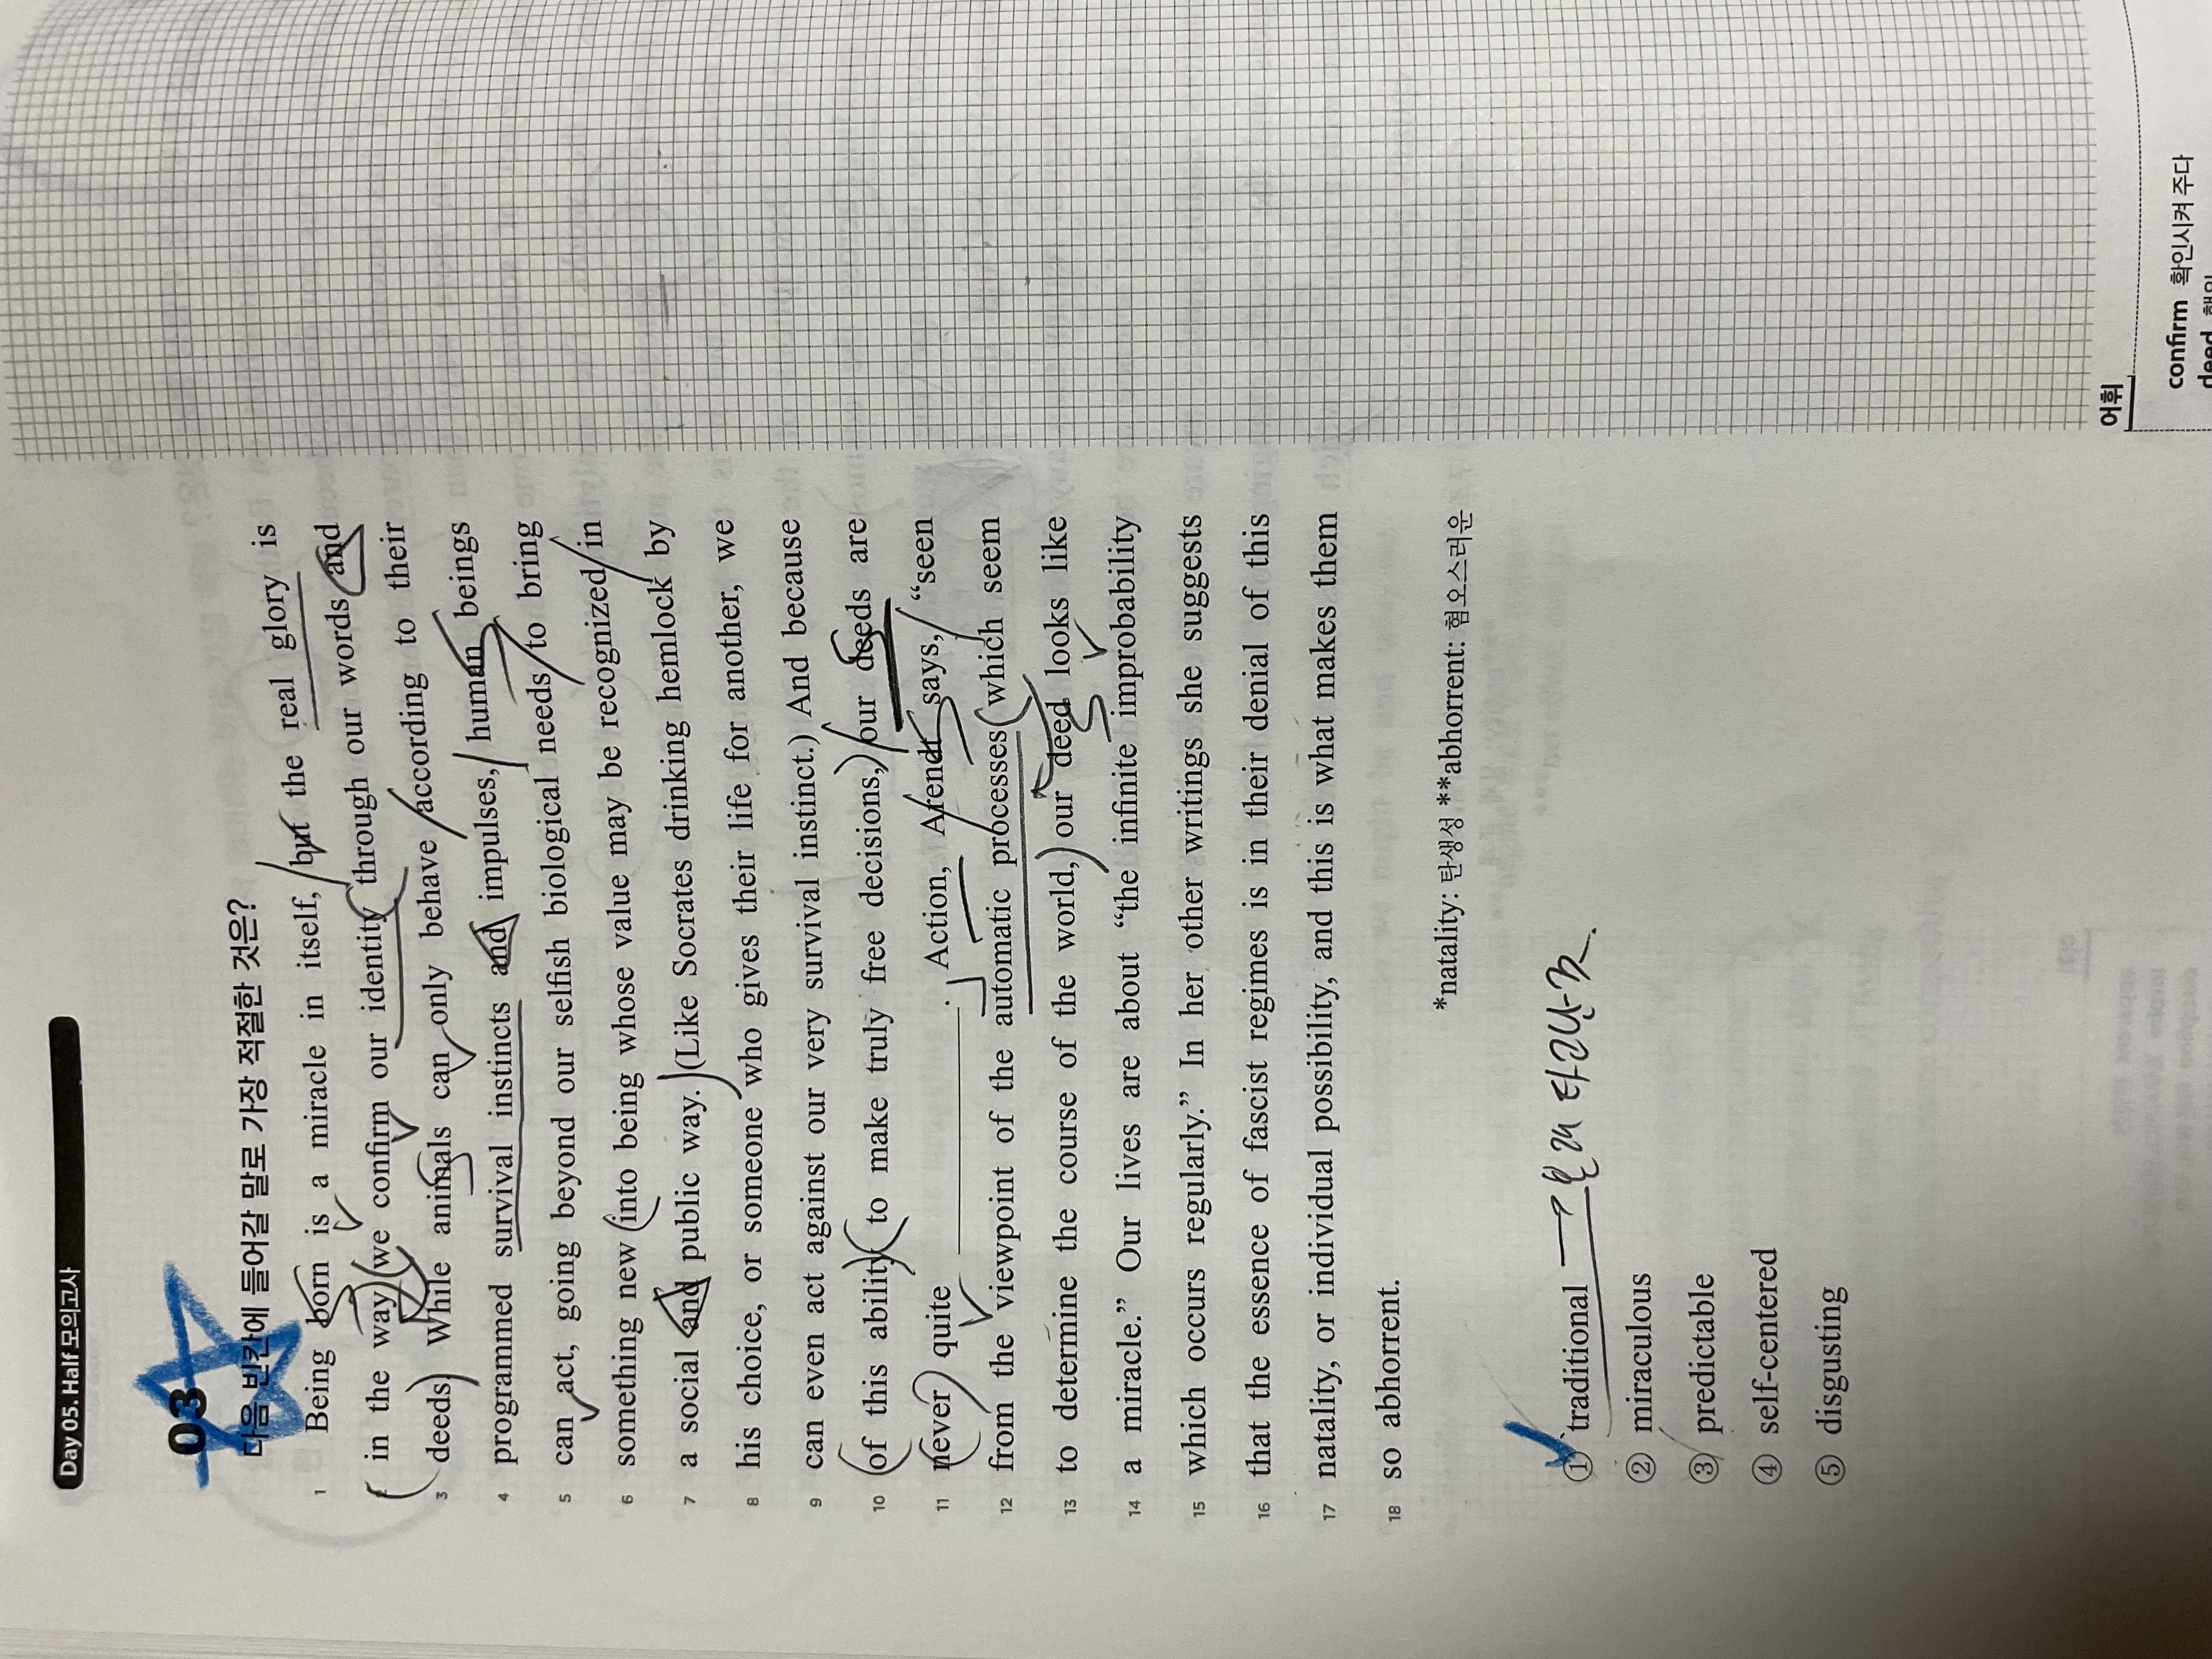 Day 05. Half 모의고사
03
다음 빈칸에 들어갈 말로 가장 적절한 것은?
1 Being born is a miracle in itself, but the real glory is
2 in the way we confirm our identity through our words and
3 deeds. While animals can only behave according to their
4 programmed survival instincts and impulses, human beings
5 can act, going beyond our selfish biological needs to bring
6 something new into being whose value may be recognized in
7 a social and public way. (Like Socrates drinking hemlock by
8 his choice, or someone who gives their life for another, we
9 can even act against our very survival instinct.) And because
10 of this ability to make truly free decisions, our deeds are
11 never quite ________. Action, Arendt says, “seen
12 from the viewpoint of the automatic processes which seem
13 to determine the course of the world, our deed looks like
14 a miracle.” Our lives are about “the infinite improbability
15 which occurs regularly.” In her other writings she suggests
16 that the essence of fascist regimes is in their denial of this
17 natality, or individual possibility, and this is what makes them
18 so abhorrent.
*natality: 탄생성 **abhorrent: 혐오스러운
① traditional
② miraculous
③ predictable
④ self-centered
⑤ disgusting
어휘
confirm 확인시켜 주다
deed 행위